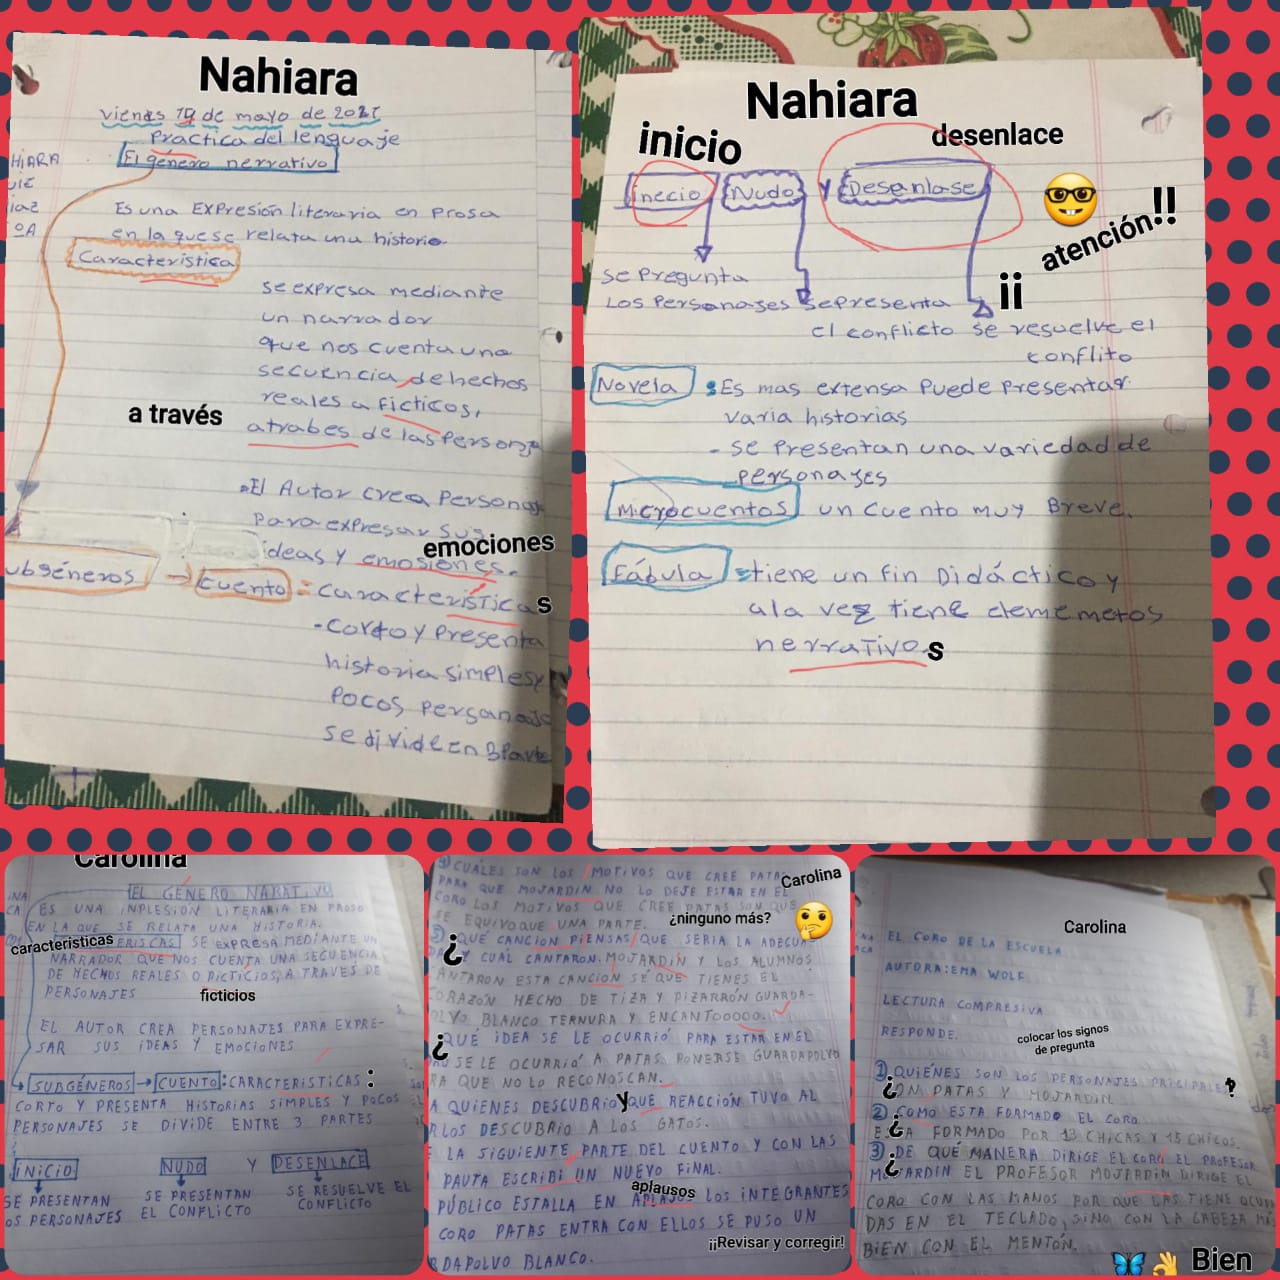 Nahiara
viernes 19 de mayo de 2021
Practica del lenguaje
El género nerrativo
HIARA
iaz
ºA
Es una EXPresión literaria en prosa
en la que se relata una historia
Característica
se expresa mediante
un narrador
que nos cuenta una
secuencia de hechos
reales a ficticos,
a través
atrabes de las Persona
El Autor crea Personaj
Para expresar sus
ideas y emosiones.
emociones
ubgéneros → cuento = característicaS
- corto y Presenta
historia simples y
Pocos personajes
se divide en 3 Parte
Nahiara
inicio
desenlace
inecio Nudo y Desenlase
atención!!
¡¡
se Pregunta
Los Personages se presenta
el conflicto se resuelve el
conflito
Novela : Es mas extensa Puede Presentar
varia historias
- se Presentan una variedad de
personages
microcuentos un cuento muy Breve.
Fábula = tiene un fin Didáctico y
a la vez tiene elememetos
nerrativos
Carolina
EL GÉNERO NARATIVO
ES UNA INPLESIÓN LITERARIA EN PROSO
EN LA QUE SE RELATA UNA HISTORIA.
características
ERISCAS SE EXPRESA MEDIANTE UN
NARRADOR QUE NOS CUENTA UNA SECUENCIA
DE HECHOS REALES O DICTICIOS, A TRAVES DE
PERSONAJES
ficticios
EL AUTOR CREA PERSONAJES PARA EXPRE-
SAR SUS IDEAS Y EMOCIONES
SUBGÉNEROS → CUENTO : CARACTERISTICAS :
CORTO Y PRESENTA HISTORIAS SIMPLES Y POCOS
PERSONAJES SE DIVIDE ENTRE 3 PARTES
INICIO NUDO Y DESENLACE
SE PRESENTAN SE PRESENTAN SE RESUELVE EL
OS PERSONAJES EL CONFLICTO CONFLICTO
CUÁLES SON LOS MOTIVOS QUE CREE PATAS
Carolina
PARA QUE MOJARDIN NO LO DEJE ESTAR EN EL
CORO LOS MOTIVOS QUE CREE PATAS SON QUE
SE EQUIVOQUE UNA PARTE.
¿ninguno más?
¿QUÉ CANCION PIENSAS QUE SERIA LA ADECUA
DA Y CUAL CANTARON. MOJARDIN Y LOS ALUMNOS
CANTARON ESTA CANCION SÉ QUE TIENES EL
CORAZÓN HECHO DE TIZA Y PIZARRÓN GUARDA-
OLVO BLANCO TERNURA Y ENCANTOOOOO.
¿QUÉ IDEA SE LE OCURRIÓ PARA ESTAR EN EL
SE LE OCURRIÓ A PATAS PONERSE GUARDAPOLVO
RA QUE NO LO RECONOSCAN.
A QUIENES DESCUBRIO y QUE REACCIÓN TUVO AL
RLOS DESCUBRIO A LOS GATOS.
LA SIGUIENTE PARTE DEL CUENTO Y CON LAS
PAUTA ESCRIBI UN NUEVO FINAL.
aplausos
PÚBLICO ESTALLA EN APLAJOS LOS INTEGRANTES
CORO PATAS ENTRA CON ELLOS SE PUSO UN
¡¡Revisar y corregir!
RDAPOLVO BLANCO.
Carolina
EL CORO DE LA ESCUELA
AUTORA: EMA WOLF
LECTURA COMPRESIVA
RESPONDE.
colocar los signos
de pregunta
① ¿QUIÉNES SON LOS PERSONAJES PRICIPALE?
SON PATAS Y MOJARDIN.
② ¿COMO ESTA FORMADO EL CORO
ESTA FORMADO POR 13 CHICAS Y 15 CHICOS.
③ ¿DE QUÉ MANERA DIRIGE EL CORO EL PROFESOR
MOJARDIN EL PROFESOR MOJARDIN DIRIGE EL
CORO CON LAS MANOS POR QUE LAS TIENE OCUPA
DAS EN EL TECLADO, SINO CON LA CABEZA MÁS
BIEN CON EL MENTÓN.
Bien